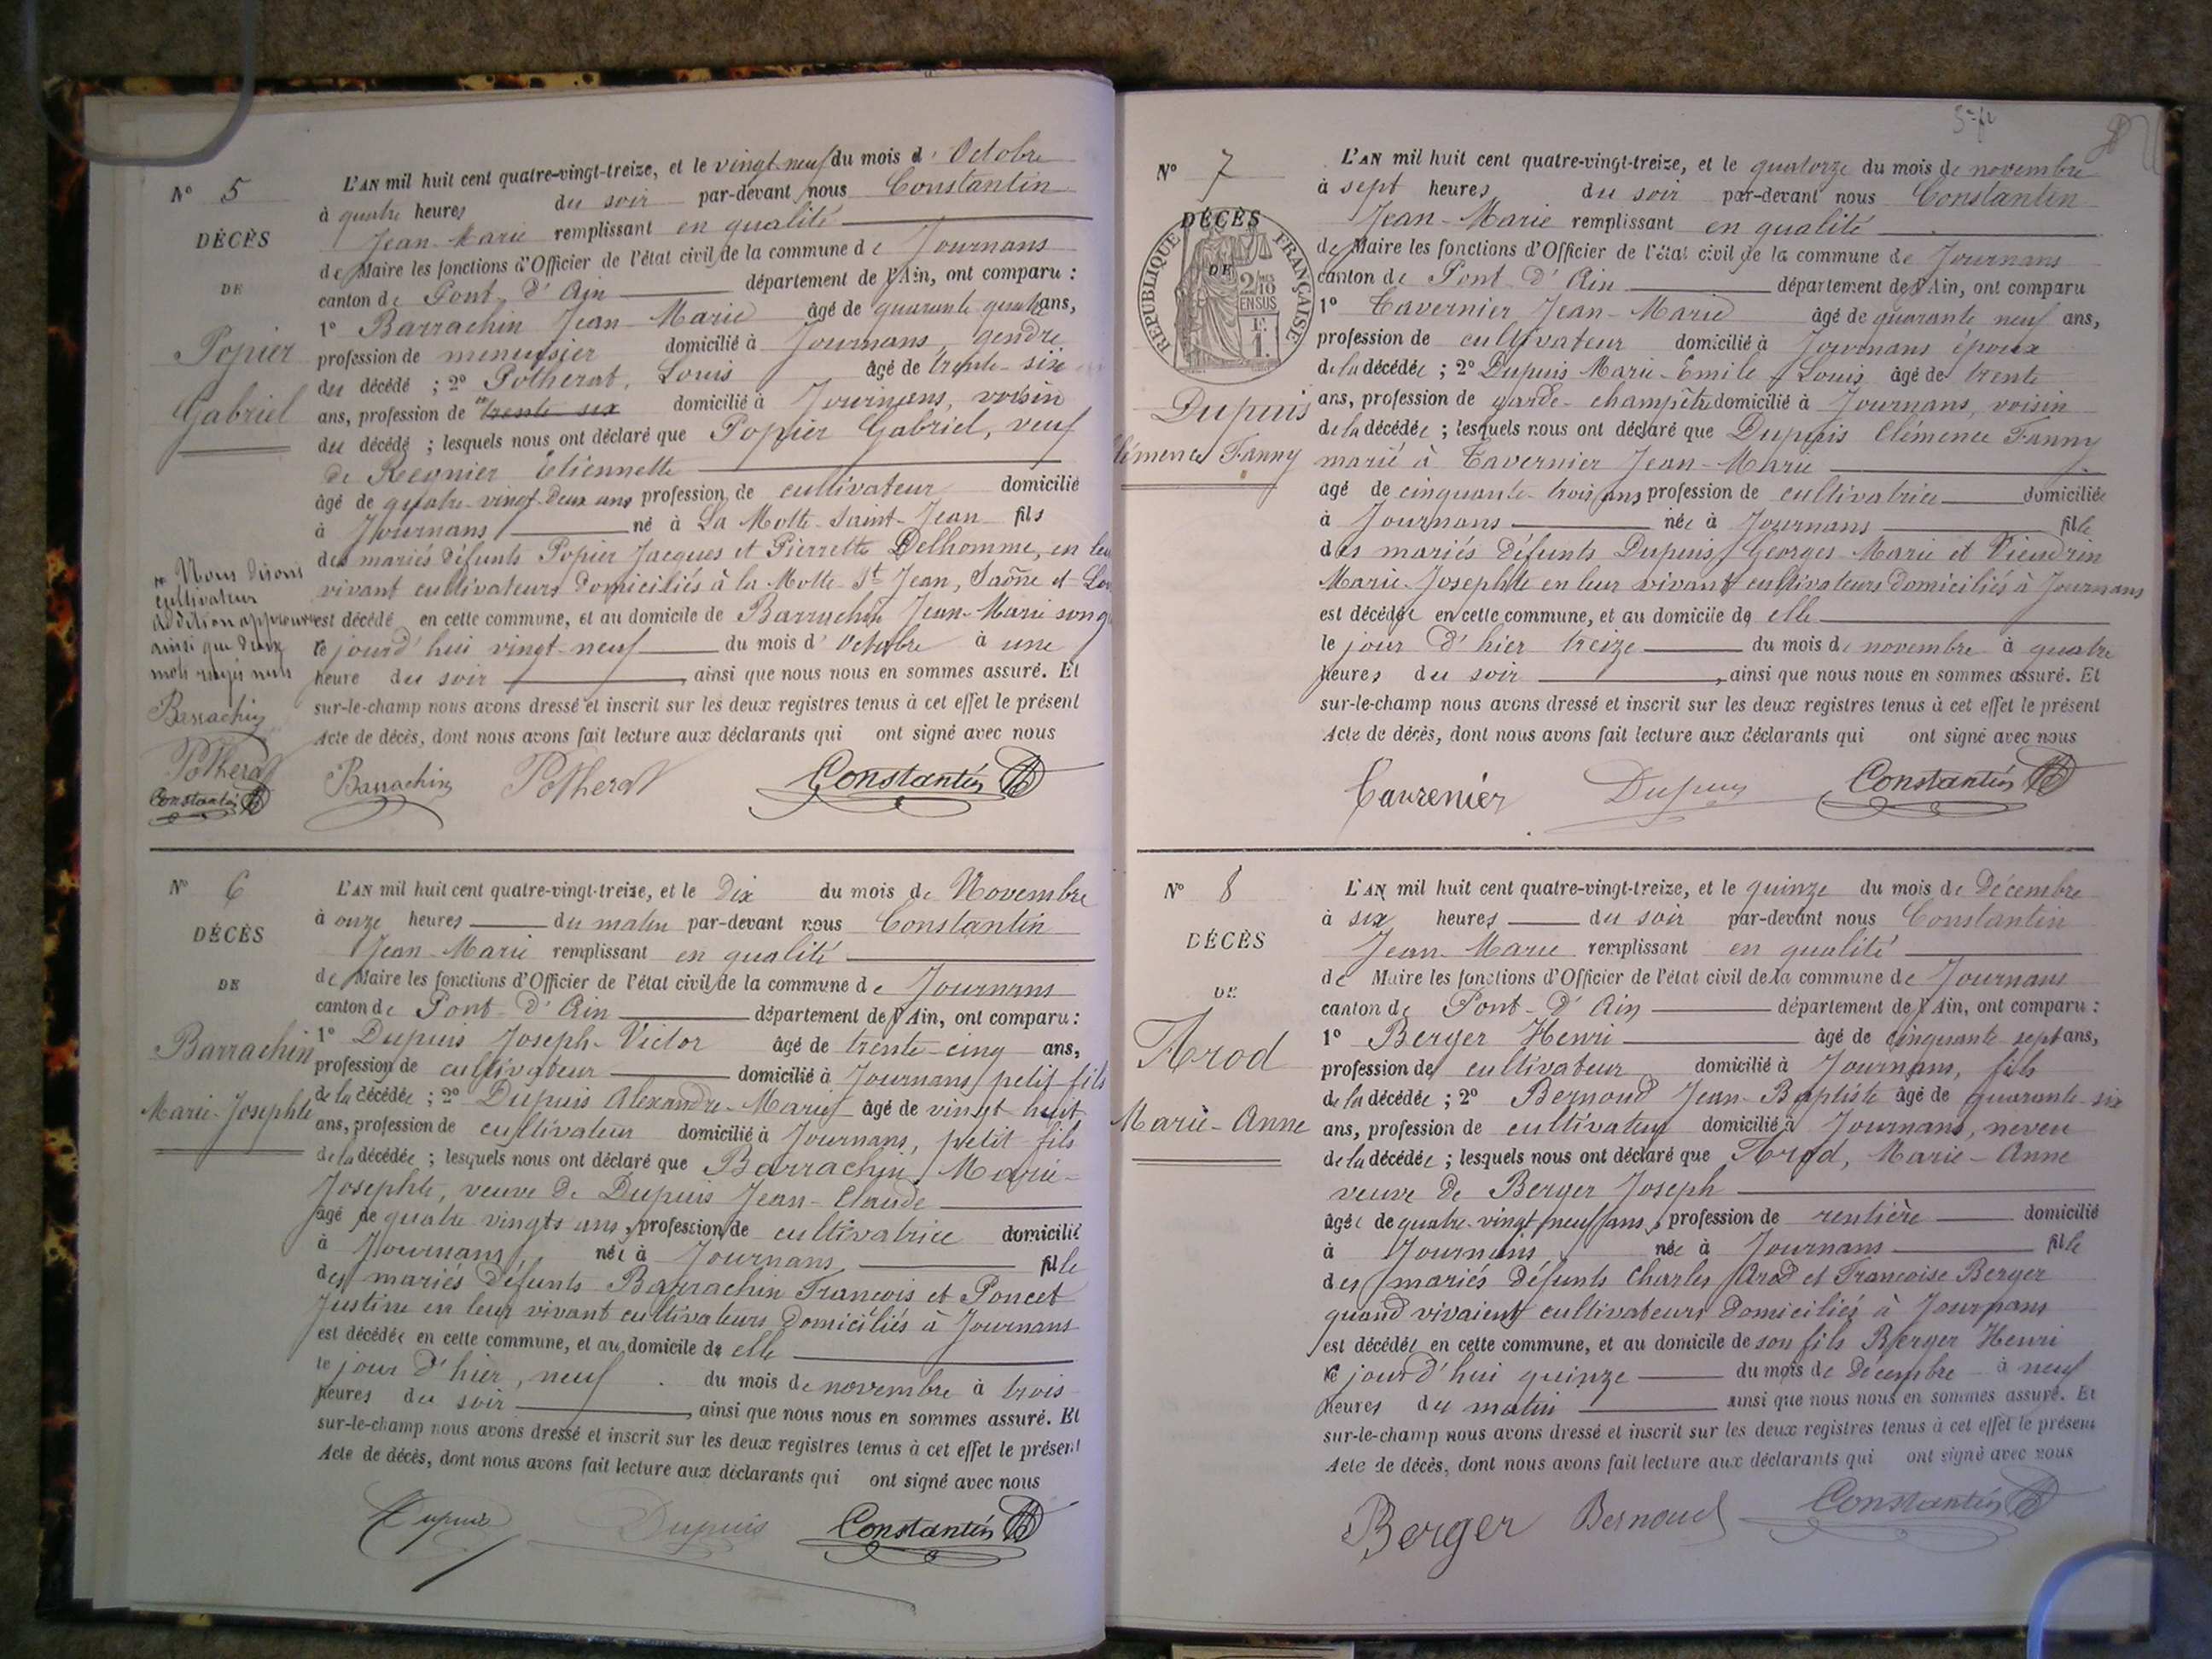 N° 5
DÉCÈS
DE
Popier
Gabriel
L'AN mil huit cent quatre-vingt-treize, et le vingt-neuf du mois d' Octobre
à quatre heures du soir par-devant nous Constantin
Jean-Marie remplissant en qualité
de Maire les fonctions d'Officier de l'état civil de la commune de Journans
canton de Pont d'Ain département de l'Ain, ont comparu :
1° Barrachin Jean-Marie âgé de quarante quatre ans,
profession de menuisier domicilié à Journans, gendre
du décédé ; 2° Potherat, Louis âgé de trente-six
ans, profession de trente six domicilié à Journans, voisin
du décédé ; lesquels nous ont déclaré que Popier Gabriel, veuf
de Regnier Etiennette
âgé de quatre-vingt-deux ans profession de cultivateur domicilié
à Journans né à La Motte-Saint-Jean fils
des mariés défunts Popier Jacques et Pierrette Delhomme, en leu
vivant cultivateurs domiciliés à la Motte-St Jean, Saône et Lo
est décédé en cette commune, et au domicile de Barrachin Jean-Marie son g
le jourd'hui vingt-neuf du mois d' Octobre à une
heure du soir, ainsi que nous nous en sommes assuré. Et
sur-le-champ nous avons dressé et inscrit sur les deux registres tenus à cet effet le présent
Acte de décès, dont nous avons fait lecture aux déclarants qui ont signé avec nous
Nous disons
cultivateur
addition approuvée
ainsi que deux
mots rayés nuls
Barrachin
Potherat
Constantin
Barrachin Potherat Constantin
N° 6
DÉCÈS
DE
Barrachin
Marie-Josephte
L'AN mil huit cent quatre-vingt-treize, et le dix du mois de Novembre
à onze heures du matin par-devant nous Constantin
Jean-Marie remplissant en qualité
de Maire les fonctions d'Officier de l'état civil de la commune de Journans
canton de Pont-d'Ain département de l'Ain, ont comparu :
1° Dupuis Joseph-Victor âgé de trente-cinq ans,
profession de cultivateur domicilié à Journans petit-fils
de la décédée ; 2° Dupuis Alexandre-Marie âgé de vingt-huit
ans, profession de cultivateur domicilié à Journans, petit-fils
de la décédée ; lesquels nous ont déclaré que Barrachin Marie-
Josephte, veuve de Dupuis Jean-Claude
âgé de quatre vingts ans, profession de cultivatrice domicilié
à Journans, née à Journans fille
des mariés défunts Barrachin Francois et Poncet
Justine en leur vivant cultivateurs domiciliés à Journans
est décédée en cette commune, et au domicile de elle
le jour d'hier, neuf du mois de novembre à trois
heures du soir, ainsi que nous nous en sommes assuré. Et
sur-le-champ nous avons dressé et inscrit sur les deux registres tenus à cet effet le présent
Acte de décès, dont nous avons fait lecture aux déclarants qui ont signé avec nous
Dupuis Dupuis Constantin
5-fr
N° 7
RÉPUBLIQUE FRANÇAISE
2/10
EN SUS
1 F.
DÉCÈS
DE
Dupuis
Clémence Fanny
L'AN mil huit cent quatre-vingt-treize, et le quatorze du mois de novembre
à sept heures du soir par-devant nous Constantin
Jean-Marie remplissant en qualité
de Maire les fonctions d'Officier de l'état civil de la commune de Journans
canton de Pont-d'Ain département de l'Ain, ont comparu
1° Tavernier Jean-Marie âgé de quarante neuf ans,
profession de cultivateur domicilié à Journans époux
de la décédée ; 2° Dupuis Marie-Emile-Louis âgé de trente
ans, profession de garde-champêtre domicilié à Journans, voisin
de la décédée ; lesquels nous ont déclaré que Dupuis Clémence Fanny
marié à Tavernier Jean-Marie
âgé de cinquante-trois ans profession de cultivatrice domiciliée
à Journans née à Journans fille
des mariés défunts Dupuis Georges-Marie et Vieudrin
Marie-Josephte en leur vivant cultivateurs domiciliés à Journans
est décédée en cette commune, et au domicile de elle
le jour d'hier treize du mois de novembre à quatre
heures du soir, ainsi que nous nous en sommes assuré. Et
sur-le-champ nous avons dressé et inscrit sur les deux registres tenus à cet effet le présent
Acte de décès, dont nous avons fait lecture aux déclarants qui ont signé avec nous
Tavrenier Dupuis Constantin
N° 8
DÉCÈS
DE
Arod
Marie-Anne
L'AN mil huit cent quatre-vingt-treize, et le quinze du mois de Décembre
à six heures du soir par-devant nous Constantin
Jean-Marie remplissant en qualité
de Maire les fonctions d'Officier de l'état civil de la commune de Journans
canton de Pont-d'Ain département de l'Ain, ont comparu :
1° Berger Henri âgé de cinquante-sept ans,
profession de cultivateur domicilié à Journans, fils
de la décédée ; 2° Bernoud Jean-Baptiste âgé de quarante-six
ans, profession de cultivateur domicilié à Journans, neveu
de la décédée ; lesquels nous ont déclaré que Arod, Marie-Anne
veuve de Berger Joseph
âgée de quatre-vingt neuf ans, profession de rentière domicilié
à Journans née à Journans fille
des mariés défunts Charles Arod et Francoise Berger
quand vivaient cultivateurs domiciliés à Journans
est décédée en cette commune, et au domicile de son fils Berger Henri
le jourd'hui quinze du mois de Décembre à neuf
heures du matin ainsi que nous nous en sommes assuré. Et
sur-le-champ nous avons dressé et inscrit sur les deux registres tenus à cet effet le présent
Acte de décès, dont nous avons fait lecture aux déclarants qui ont signé avec nous
Berger Bernoud Constantin